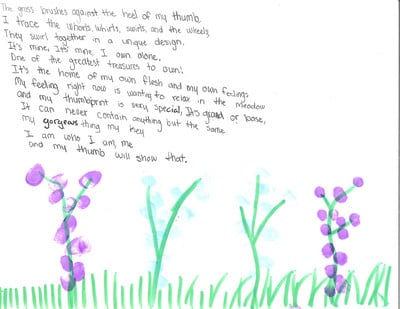 The grass brushes against the heel of my thumb.
I trace the whorls, whirls, swirls, and the wheels
They swirl together in a unique design.
It's mine, It's mine I own alone,
One of the greatest treasures to own!
It's the home of my own flesh and my own feelings
My feeling right now is wanting to relax in the meadow
and my thumbprint is very special, It's grand or loose,
It can never contain anything but the same
my gorgeous thing my key
I am who I am, me
and my thumb will show that.